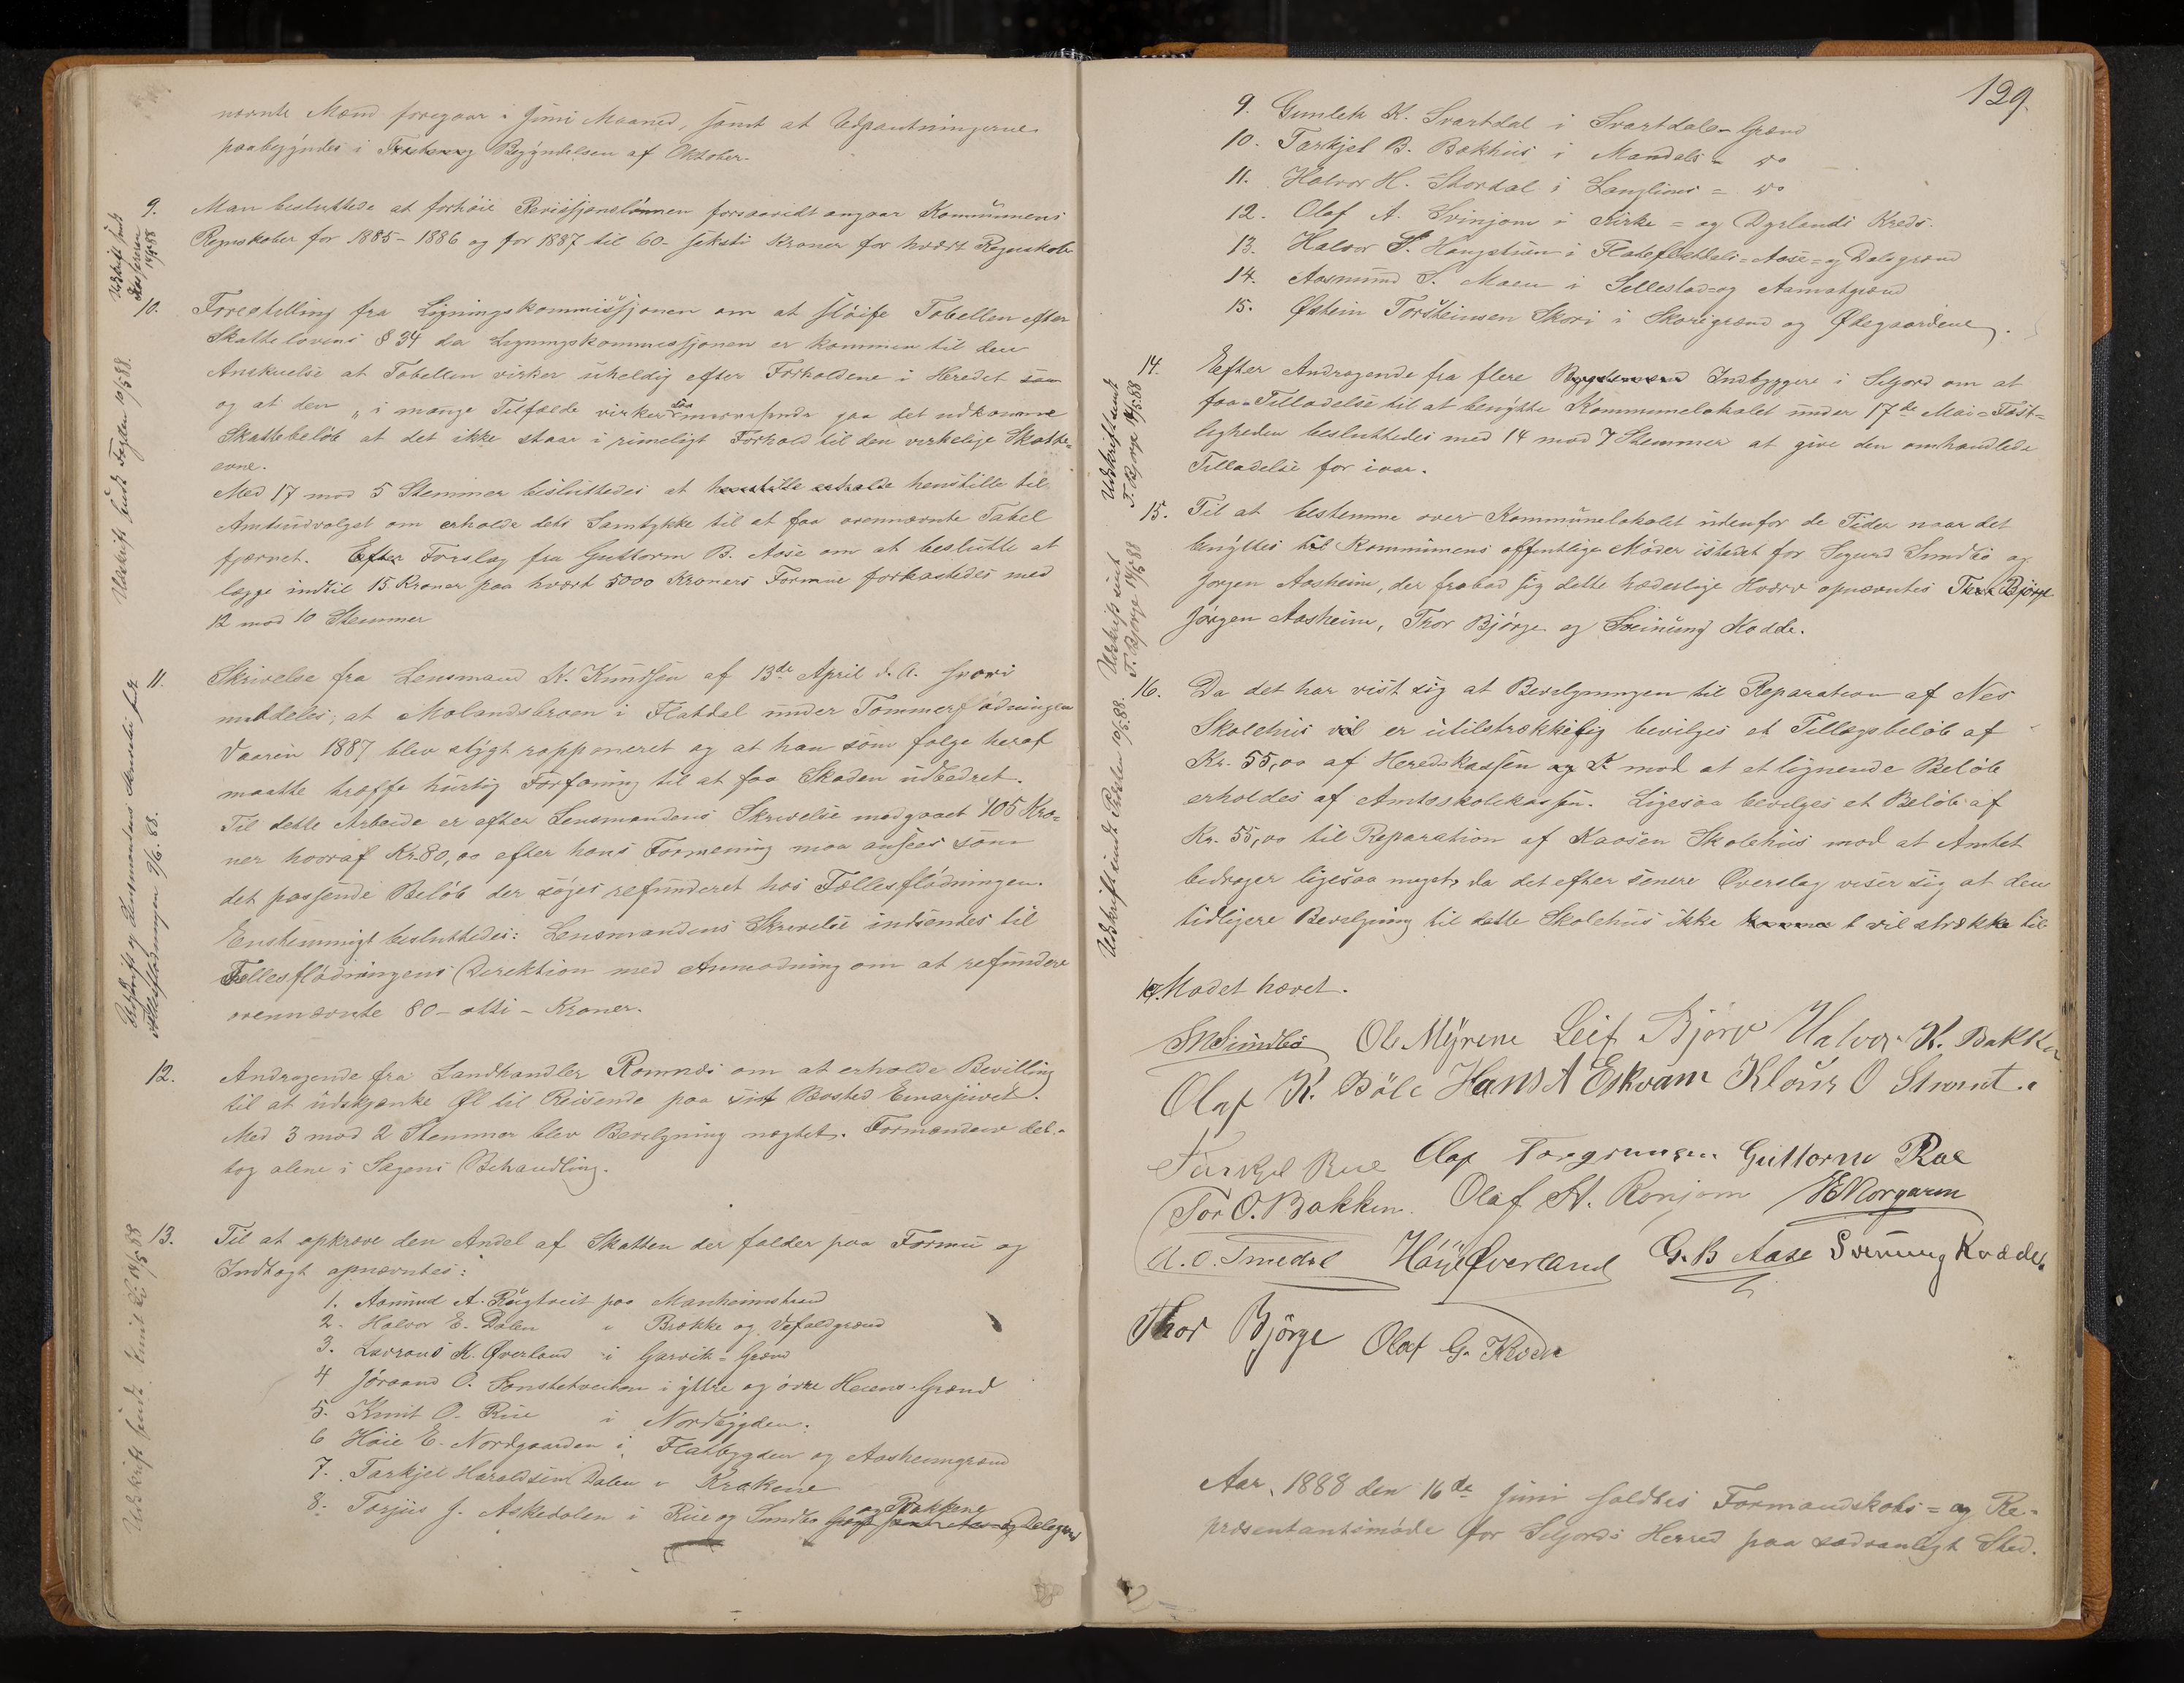 nævnte Mænd foregaar i Juni Maaned, samt at Udpantningerne
paabegyndes i Begyndelsen af Oktober.
9. Man besluttede at forhøie Revisjonslønnen forsaavidt angaar Kommunens
Regnskaber for 1885-1886 og for 1887 til 60- seksti Kroner for hvært Regnskab
Udskrift sendt
Kassereren
14/5 88
10. Forestilling fra Ligningskommissjonen om at sløife Tabellen efter
Skattelovens § 34 da Ligningskommissjonen er kommen til den
Anskuelse at Tabellen virker uheldig efter Forholdene i Heredet
og at den „ i mange Tilfælde virker saa paa det udkomne
Skattebeløb at det ikke staar i rimeligt Forhold til den virkelige Skatte=
evne.
Med 17 mod 5 Stemmer besluttedes at henstille til
Amtsudvalget om erholde dets Samtykke til at faa ovennævnte Tabel
fjærnet. Efter Forslag fra Guttorm B. Aase om at beslutte at
lægge indtil 15 Kroner paa hvært 5000 Kroners Formue forkastedes med
12 mod 10 Stemmer
Udskrift sendt Fogden 19/5 88.
11. Skrivelse fra Lensmand K. Knudsen af 13de April d. A. hvori
meddeles, at Molandsbroen i Flatdal under Tømmerflødningen
Vaaren 1887 blev stygt ramponeret og at han som følge heraf
maatte træffe hurtig Forføining til at faa Skaden udbedret.
Til dette Arbeide er efter Lensmandens Skrivelse medgaaet 105 Kro=
ner hvoraf Kr. 80,00 efter hans Formening maa ansees som
det passende Beløb der søges refunderet hos Fællesflødningen.
Enstemmigt besluttedes: Lensmandens Skrivelse indsendes til
Fællesflødningens Direktion med Anmodning om at refundere
ovennævnte 80- otti - Kroner.
Udskrift og Lensmandens Skrivelse sendt
Fællesflødningen 9/6. 88.
12. Andragende fra Landhandler Romnæs om at erholde Bevilling
til at udskjænke Øl til Reisende paa sit Bosted Einarjuvet.
Med 3 mod 2 Stemmer blev Bevilgning nægtet. Formændene del-
tog alene i Sagens Behandling.
13. Til at opkræve den Andel af Skatten der falder paa Formue og
Indtægt opnævntes:
1. Aamund A. Rugtveit paa Manheimstrand
2. Halvor E. Dalen i Brække og Vefaldgrænd
3. Lavrans K. Øverland i Garvik= Grænd
4 Jøraand O. i yttre og øvre Heiens-Grænd
5. Knut O. Rue i Nordbygden.
6 Høie E. Nordgaarden i Flatbygden og Aasheimgrænd
7. Tarkjel Haraldsen Dalen i Krakene
8. Tarjus J. Askedalen i Rue og Sundbø og Bakkene
Udskrift sendt Knut Lie 14/5 88
129.
9. Gunlek K. Svartdal i Svartdals- Grænd
10. Tarkjel B. Bakhus i Mandals = do
11. Halvor H. Stordal i Langlims = do
12. Olaf A. Svinjom i Kirke = og Dyrlands Kreds.
13. Halvor S. Haugstuen i Flateflatdals= Aase= og Dalsgrænd
14. Aasmund S. Moen i Sellestad= og Aamotgrænd
15. Østein Torsteinsen Skori i Skorigrænd og Ødegaardene.
14. Efter Andragende fra flere Indbyggere i Seljord om at
faa Tilladelse til at benytte Kommunelokalet under 17de Mai= Fæst=
ligheden besluttedes med 14 mod 7 Stemmer at give den omhandlede
Tilladelse for iaar.
Udskrift sendt
T. Bjørge 14/5. 88
15. Til at bestemme over Kommunelokalet udenfor de Tider naar det
benyttes til Kommunens offentlige Møder istedet for Sigurd Sundbø og
Jørgen Aasheim, der frabad sig dette hæderlige Hværv opnævntes Thor Bjørge
Jørgen Aasheim, Thor Bjørge og Sveinung Kodde.
Udskrift sendt
T. Bjørge 14/5 88
16. Da det har vist sig at Bevilgningen til Reparation af Nes
Skolehus vil er utilstrækkelig bevilges et Tillægsbeløb af
Kr. 55,00 af Heredskassen mod at et lignende Beløb
erholdes af Amtsskolekassen. Ligesaa bevilges et Beløb af
Kr. 55,00 til Reparation af Kaasen Skolehus mod at Amtet
bidrager ligesaa meget, da det efter senere Overslag viser sig at den
tidligere Bevilgning til dette Skolehus ikke vil strække til
Udskrift sendt 19/5. 88.
17. Mødet hævet.
SMSundbø Ole Myrene Leif Bjørge Halvor K. Bakke
Olaf K. Bøle Hans A Eskvam Klaus O
Tarkjel Rue Olaf Torgrimsen Guttorm Rae
Tor O. Bakken. Olaf A. Ronjom
A. O. Smedal Høye Øverland G. B Aase Sveinung Kodde.
Thor Bjørge Olaf G. Kleven
Aar, 1888 den 16de Juni holdtes Formandskabs = og Re=
præsentantsmøde for Seljords Herred paa sædvanligt Sted.